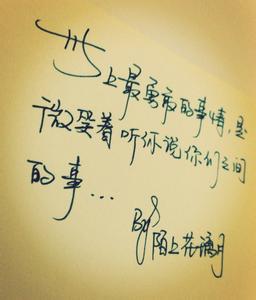 世上最勇敢的事情,是
微笑着听你说你们之间
的事...
By 陌上花满月